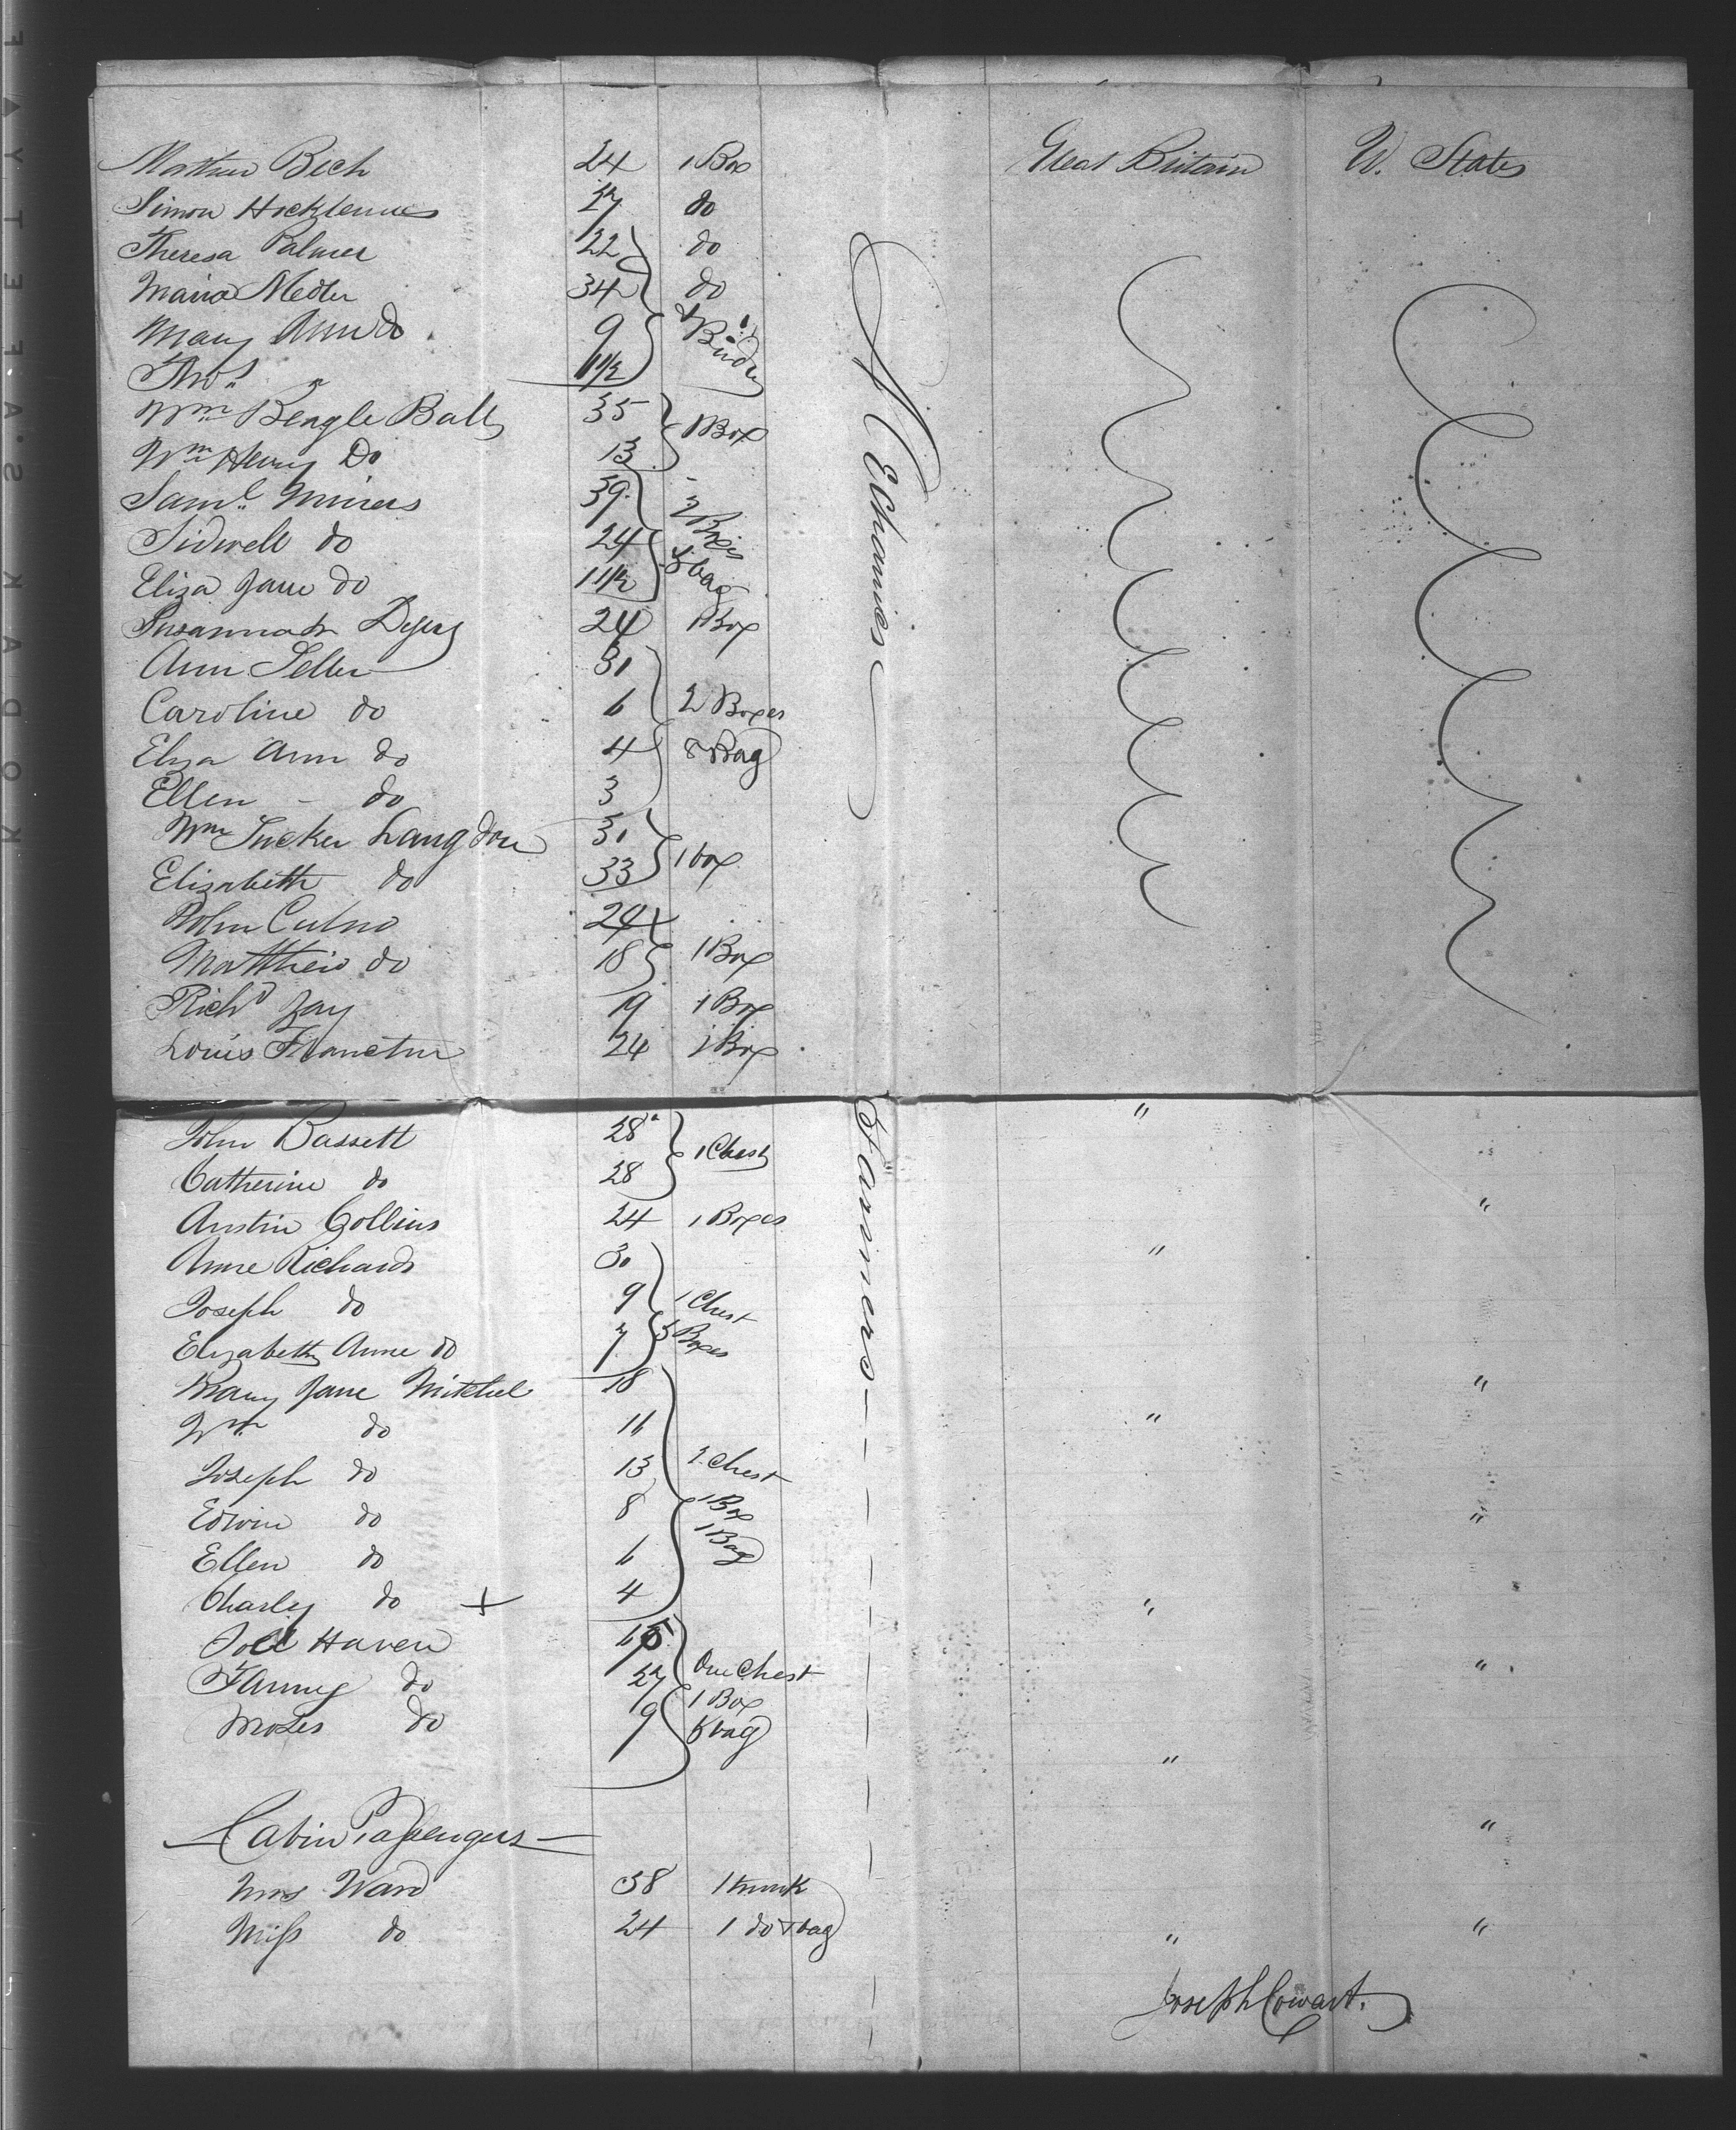 Great Britain U. States
Mathew Bech 24 1 Box
Simon Hocklennes 27 do
Theresa Palmer 22 do
Maria Medler 34 do
Mary Ann do 9
Thos 11/2
Wm Beagle Ball 35 1 Box
Wm Henry Do 13
Saml Miners 39
Sidwell do 24 & bag
Eliza Jane do 11/2
Susannah Dyer 24 1 Box
Ann Seller 31
Caroline do 6 2 Boxes
Eliza Ann do 4 & Bag
Ellen - do 3
Wm Tucker Langdon 31 1 box
Elizabeth do 33
John Culno 24
Matthew do 18 1 Box
Richd Jay 19 1 Box
Louis 24 1 Box
Mechanics
John Bassett 28 1 Chest
Catherine do 28
Austin Collins 24 1 Boxes
Anne Richards 30
Joseph do 9 1 Chest
Elizabeth Anne do 7 Boxes
Mary Jane Mitchel 18
Wm do 11
Joseph do 13 2 Chest
Edwin do 8 1 Box
Ellen do 6 1 Bag
Charley do + 4
Joel Haven
Fanny do 27 One Chest
Moses do 9 1 Box
& bag
Farmers
Cabin Passengers
Mrs Ward 38 1 trunk
Miss do 24 1 do & bag
Joseph Cowart.
KODAK SAFETY